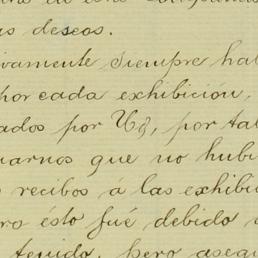 as deseos.
ivamente siempre hab
por cada exhibición,
ados por Vd, por tal
uarnos que no hubi
recibos á las exhibic
ro ésto fué debido
tenido, pero asegu